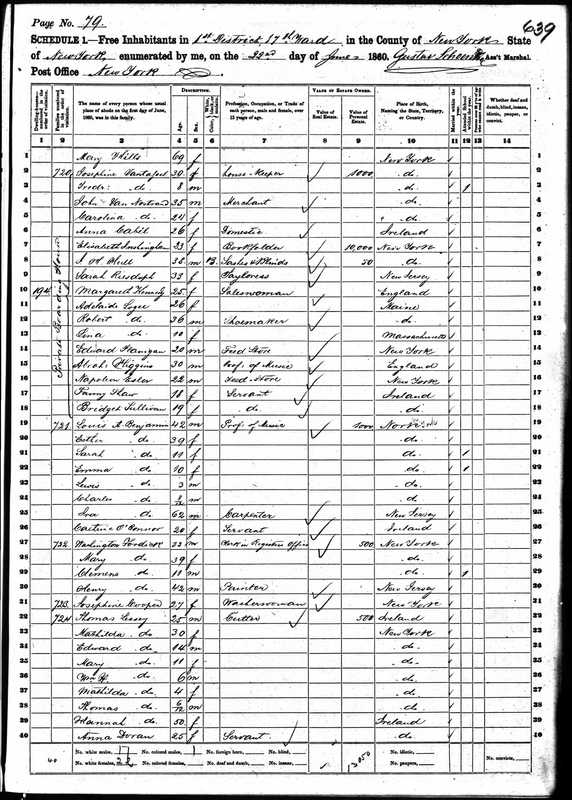 Page No. 79.
639
SCHEDULE 1.—Free Inhabitants in 1st District 17th Ward in the County of New York State
of New York, enumerated by me, on the 22nd day of June 1860. Gustav Ass't Marshal.
Post Office New York
Dwelling-houses— numbered in the order of visitation.
Families numbered in the order of visitation.
The name of every person whose usual place of abode on the first day of June, 1860, was in this family.
DESCRIPTION.
Age.
Sex.
White, black, or mulatto.
Color,
Profession, Occupation, or Trade of each person, male and female, over 15 years of age.
VALUE OF ESTATE OWNED.
Value of Real Estate.
Value of Personal Estate.
Place of Birth, Naming the State, Territory, or Country.
Married within the year.
Attended School within the year.
Whether deaf and dumb, blind, insane, idiotic, pauper, or convict.
1 2 3 4 5 6 7 8 9 10 11 12 13 14
1 Mary 69 f New York 1
2 720 Josephine 30 f House-Keeper 1000 do. 2
3 Fredr. do. 8 m do. 1 3
4 John Van Nostrand 35 m Merchant do. 4
5 Carolina do. 24 f do. 5
6 Anna Cahil 26 f Domestic Ireland 6
7 Elisabeth 33 f Bookfolder 10,000 New York 7
8 Hull 35 m B Sashes & Blinds 50 do. 8
9 Sarah Rusdolph 33 f Tayloress New Jersey 9
10 194 Margareth Kennedy 25 f Saleswoman England 10
11 Adelaide 26 f Maine 11
12 Robert do. 36 m Shoemaker do. 12
13 Lina do. 10 f Massachusetts 13
14 Edward Flanigan 20 m Feed Store New York 14
15 Higgins 30 m Prof. of Music England 15
16 Napoleon 22 m Feed-Store New York 16
17 Fanny Shaw 18 f Servant Ireland 17
18 Bridget Sullivan 19 f do. do. 18
Private Boarding House
19 721 Louis A. Benjamin 42 m Prof. of Music 1000 New York 19
20 Esther do. 39 f do. 20
21 Sarah do. 11 f do. 1 21
22 Emma do. 10 f do. 1 22
23 Lewis do. 3 m do. 23
24 Charles do. m do. 24
25 Ira do. 62 m Carpenter New Jersey 25
26 O'Connor 20 f Servant Ireland 26
27 722 Washington 33 m Clerk in Registers Office 500 New York 27
28 Mary do. 39 f do. 28
29 Clemens do. 11 m do. 1 29
30 Henry do. 43 m Painter New Jersey 30
31 723 Josephine Cooper 27 f Washerwoman New York 31
32 724 Thomas 25 m Cutter 500 Ireland 32
33 Mathilda do. 30 f New York 33
34 Edward do. 14 m do. 34
35 Mary do. 11 f do. 35
36 Wm H. do. 6 m do. 36
37 Mathilda do. 4 f do. 37
38 Thomas do. 6/12 m do. 38
39 Hannah do. 50 f Ireland 39
40 Anna Doran 25 f Servant do. 40
40 No. white males, 17 No. colored males, 1 No. foreign born, No. blind, 13050 No. idiotic, No. convicts,
No. white females, 22 No. colored females, No. deaf and dumb, No. insane, No. paupers,